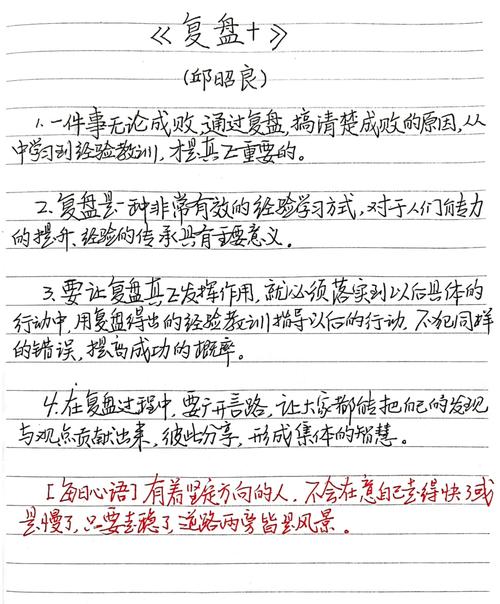 《复盘+》
(邱昭良)
1.一件事无论成败,通过复盘,搞清楚成败的原因,从
中学习到经验教训,才是真正重要的。
2.复盘是一种非常有效的经验学习方式,对于人们能力
的提升、经验的传承具有重要意义。
3.要让复盘真正发挥作用,就必须落实到以后具体的
行动中,用复盘得出的经验教训指导以后的行动,不犯同样
的错误,提高成功的概率。
4.在复盘过程中,要广开言路,让大家都能把自己的发现
与观点贡献出来,彼此分享,形成集体的智慧。
[每日心语]有着坚定方向的人,不会在意自己走得快了或
是慢了,只要走稳了,道路两旁皆是风景。